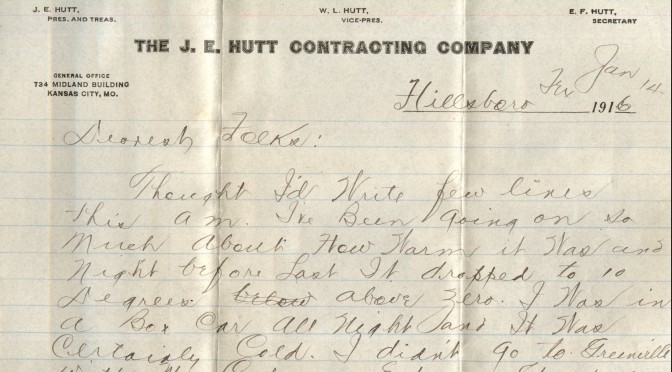 J. E. HUTT,
PRES. AND TREAS.
W. L. HUTT,
VICE-PRES.
E. F. HUTT,
SECRETARY
THE J. E. HUTT CONTRACTING COMPANY
GENERAL OFFICE
734 MIDLAND BUILDING
KANSAS CITY, MO.
Hillsboro Tex Jan 14 1916
Dearest Folks:
Thought I'd Write few lines
this Am. I've Been going on so
Much About How Warm it Was and
Night before Last It dropped to 10
Degrees below above Zero. I Was in
a Box Car All Night and It Was
Certainly Cold. I didn't go to Greenville